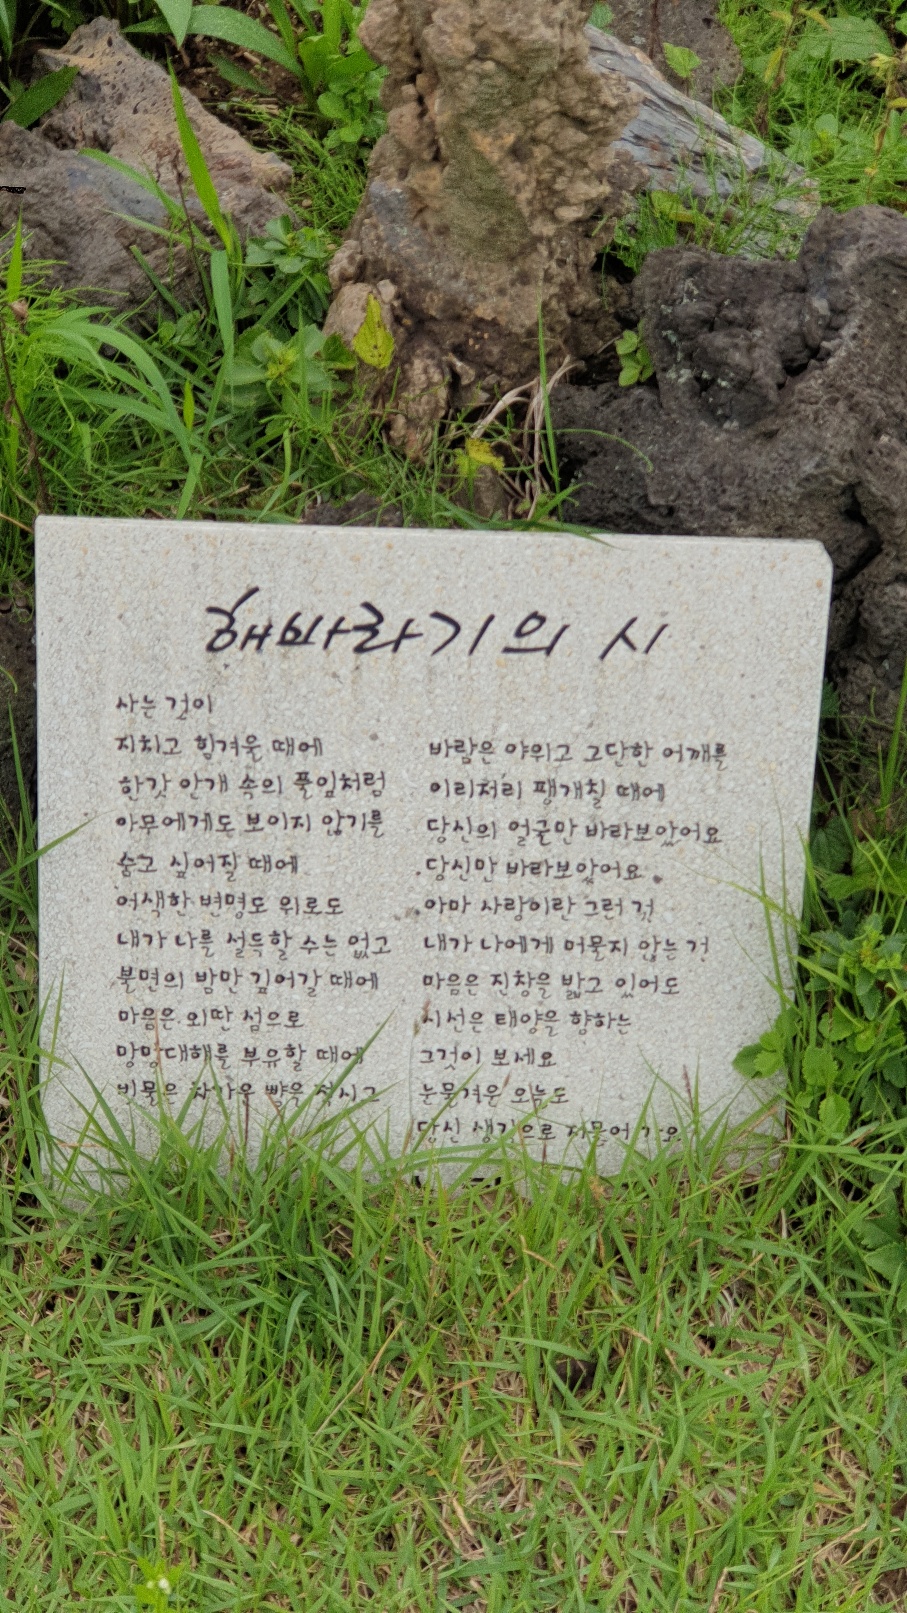 해바라기의 시
사는 것이
지치고 힘겨울 때에
한갓 안개 속의 풀잎처럼
아무에게도 보이지 않기를
숨고 싶어질 때에
어색한 변명도 위로도
내가 나를 설득할 수는 없고
불면의 밤만 깊어갈 때에
마음은 외딴 섬으로
망망대해를 부유할 때에
빗물은 차가운 뺨을 적시고
바람은 야위고 고단한 어깨를
이리저리 팽개칠 때에
당신의 얼굴만 바라보았어요
당신만 바라보았어요
아마 사랑이란 그런 것
내가 나에게 머물지 않는 것
마음은 진창을 밟고 있어도
시선은 태양을 향하는
그것이 보세요
눈물겨운 오늘도
당신 생각으로 저물어 가요